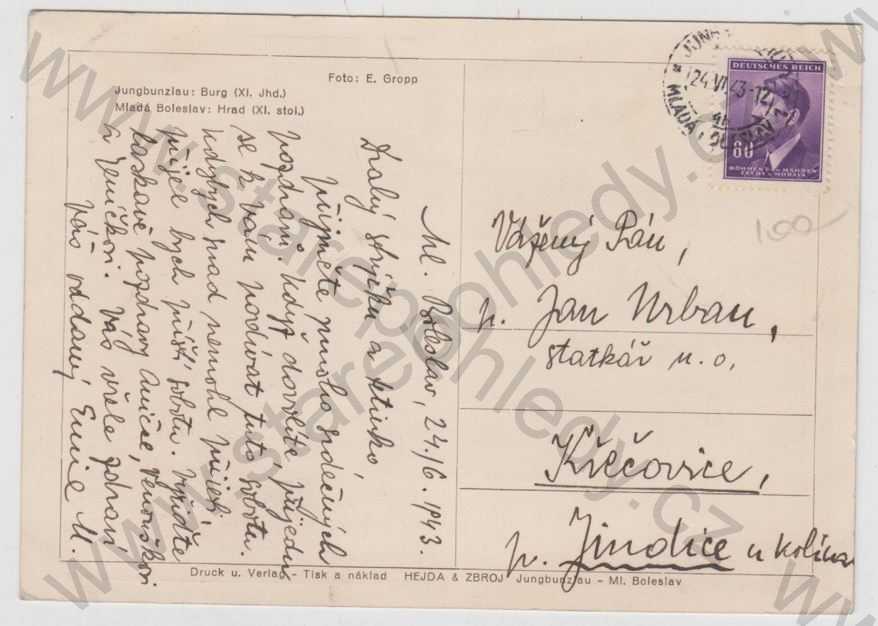 Jungbunzlau: Burg (XI. Jhd.)
Mladá Boleslav: Hrad (XI. stol.)
Foto: E. Gropp
Ml. Boleslav, 24/6. 1943.
Drahý strýčku a tetinko
přijměte mnoho srdečných
pozdravů. Když dovolíte přijedu
se k Vám podívat tuto sobotu.
Kdybych snad nemohl přijeti
přijel bych příští sobotu. Vyřiďte
laskavě pozdravy Aničce, Venouškovi
a Jeníčkovi. Vás vřele zdraví
Váš oddaný M.
DEUTSCHES REICH
60
BÖHMEN UND MÄHREN
ČECHY A MORAVA
24.VI.43-12
MLADÁ BOLESLAV 1
100
Vážený Pán,
p. Jan Urban,
statkář n. o,
Křečovice,
p. Jindice u Kolína
Druck u. Verlag - Tisk a náklad HEJDA & ZBROJ Jungbunzlau - Ml. Boleslav
www.starepohledy.cz
www.starepohledy.cz